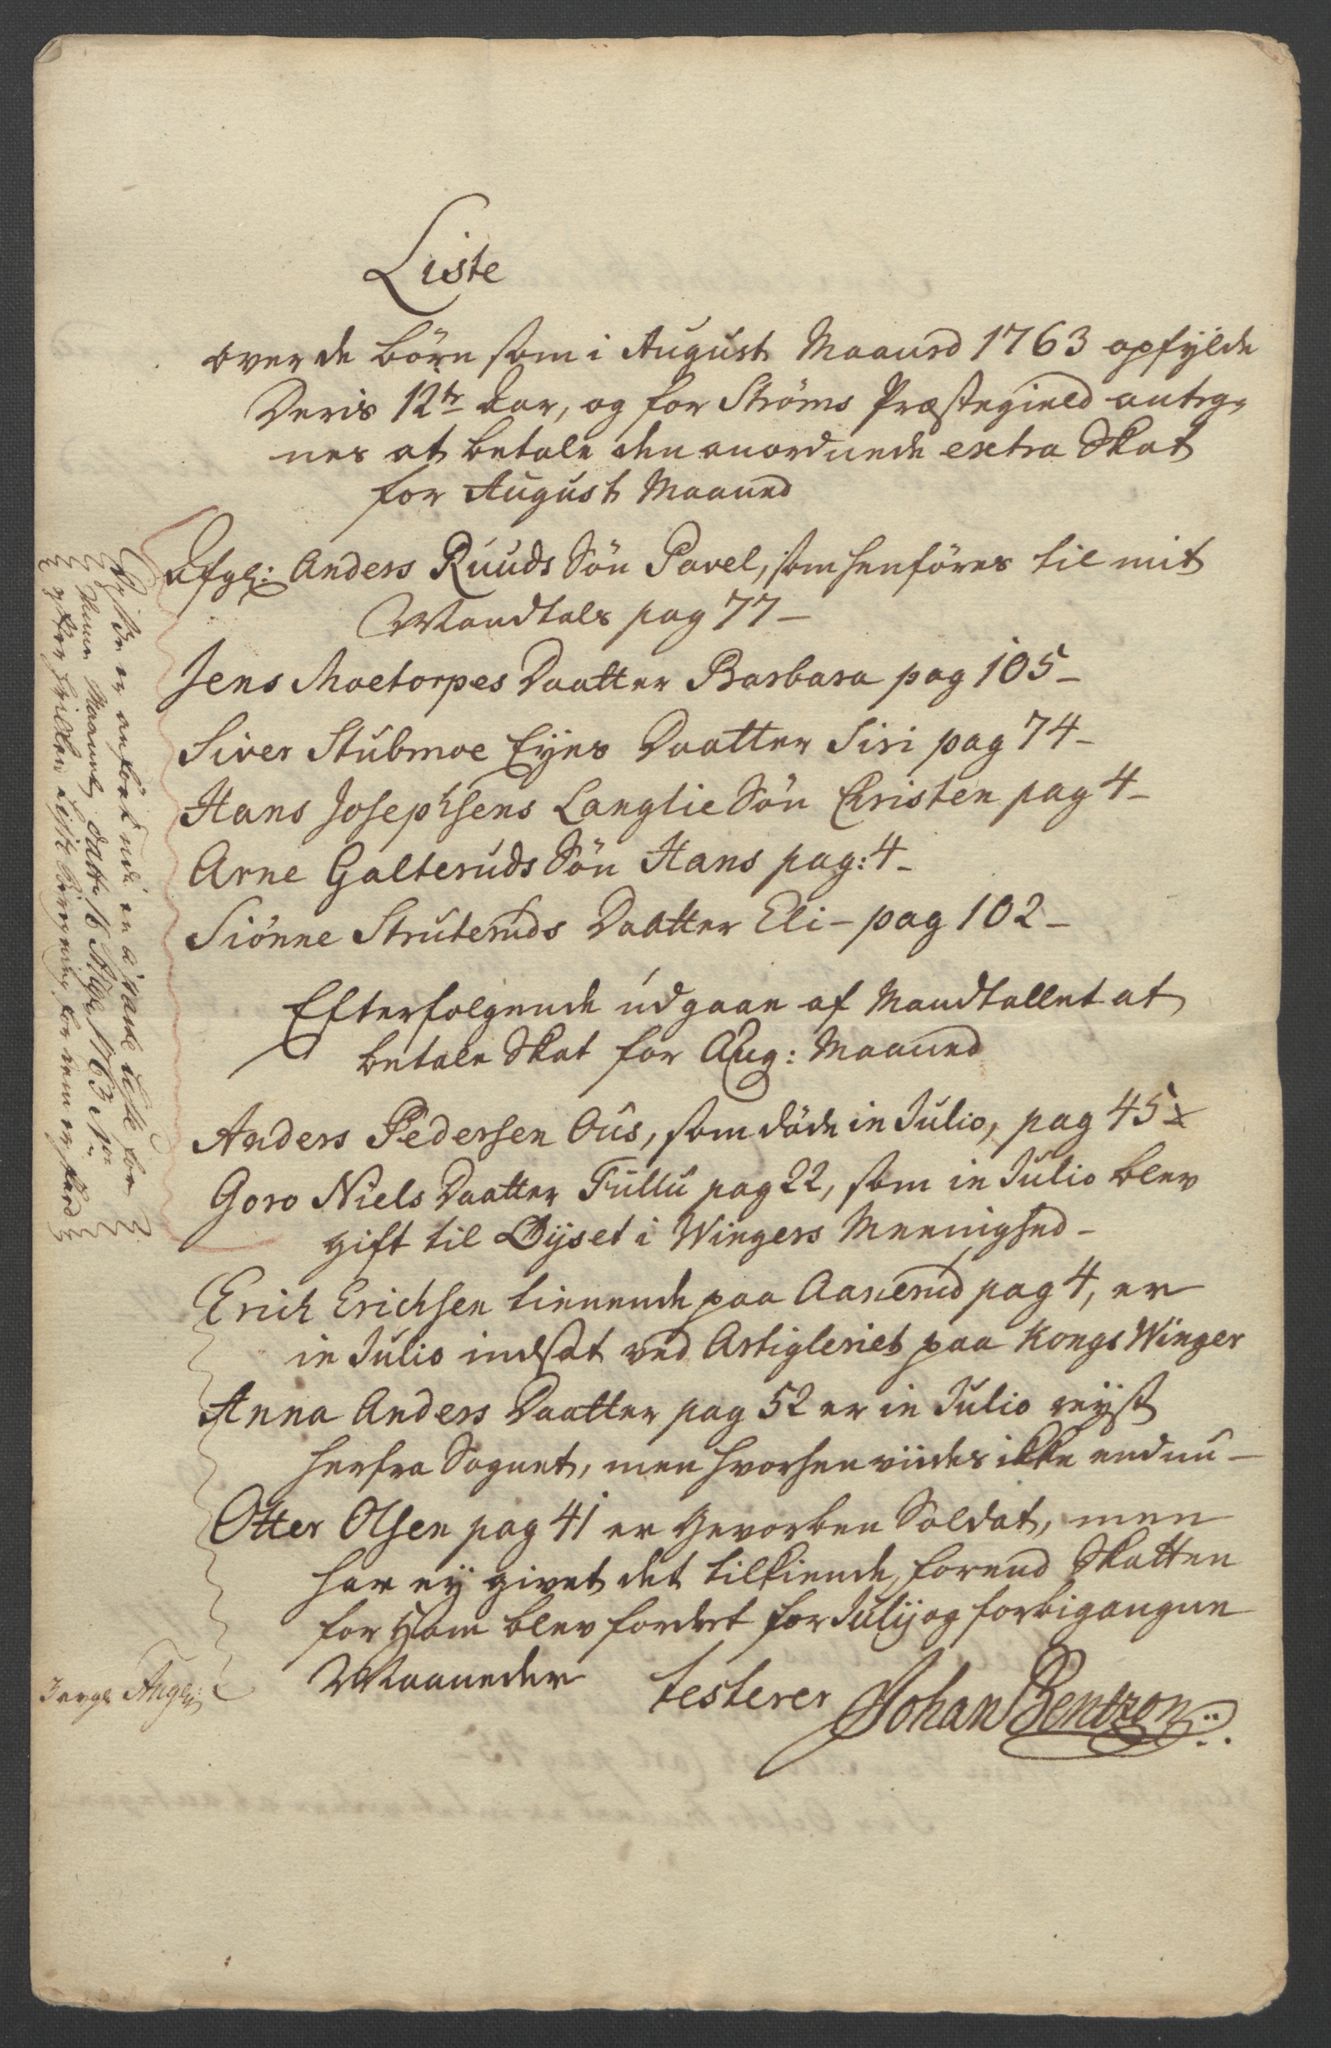 Liste
over de börn som i August Maaned 1763 opfylde
Deris 12te Aar, og for Ströms Præstegield anteg=
nes at betale den anordnede extra Skat
for August Maaned
Afgl: Anders Ruuds Sön Povel, som henföres til mit
Mandtals pag 77 –
Jens Moetorpes Daatter Barbara pag 105 –
Siver Stubmoe Eyes Daatter Siri pag 74 –
Hans Josephsens Langlie Sön Christen pag 4 –
Arne Galteruds Sön Hans pag: 4 –
Siönne Struteruds Daatter Eli – pag 102 –
Efterfølgende udgaae af Mandtallet at
betale Skat for Aug: Maaned
Anders Pedersen Ous, som döde in Julio, pag 45
Goro Niels Daatter Fullu pag 22, som in Julio blev
gift til Öyset i Wingers Meenighed –
Erich Erichsen tienende paa Aaserud pag 4, er
in Julio indsat ved Artigleriet paa Kongs Winger
Anna Anders Daatter pag 52 er in Julio reyst
herfra Sognet, men hvorhen viides ikke endnu –
Otter Olsen pag 41 er Gevorben Soldat, men
har ey givet det tilkiende, forend Skatten
for Ham blev fordret for July og forbigangne
Maaneder
testerer Johan Bentzon
Jørgl Angel